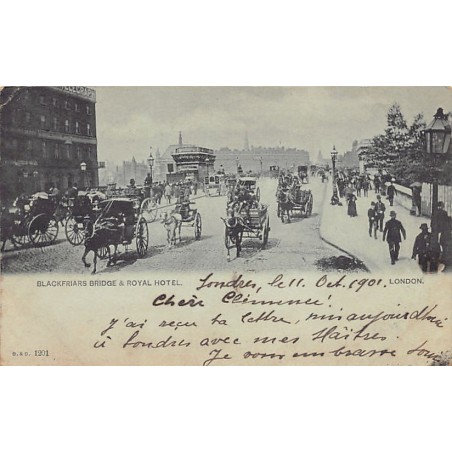 BLACKFRIARS BRIDGE & ROYAL HOTEL. LONDON.
Londres, le 11. Oct. 1901.
Cher Clémence!
J'ai reçu ta lettre, suis aujourd'hui
à Londres avec mes Maîtres.
Je vous embrasse tous
B.& D. 1201